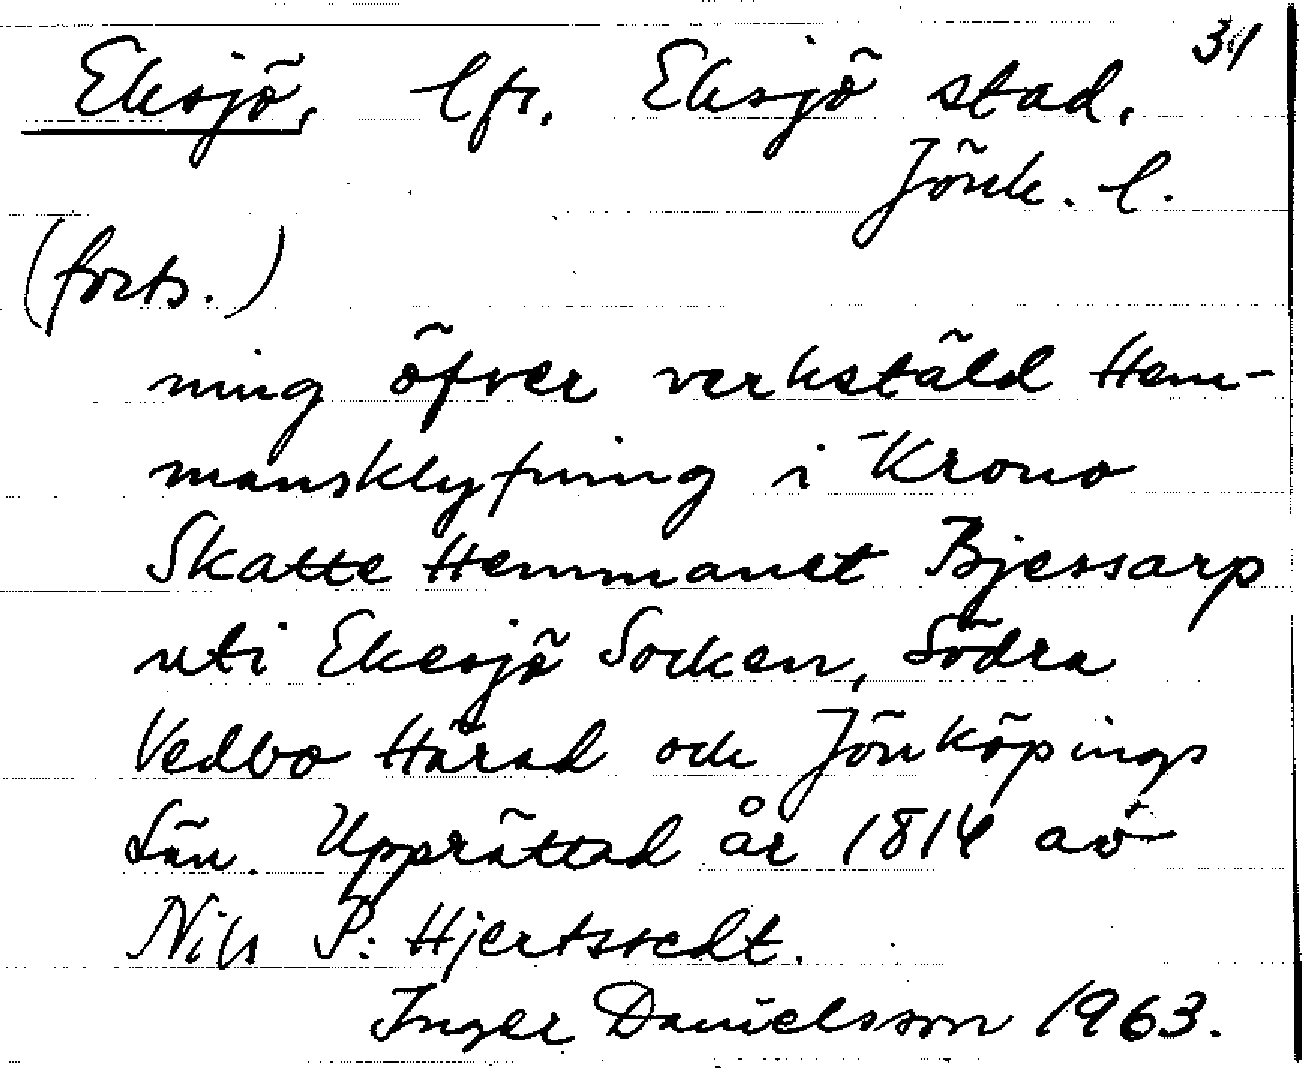 31
Eksjö, lfs. Eksjö stad,
Jönk. l.
(forts.)
ning öfver verkstäld Hem-
mansklyfning i Krono
Skatte Hemmanet Bjessarp
uti Ekesjö Socken, Södra
Vedbo Härad och Jönköpings
Län. Upprättad år 1814 av
Nils P: Hjertstedt.
Inger Danielsson 1963.